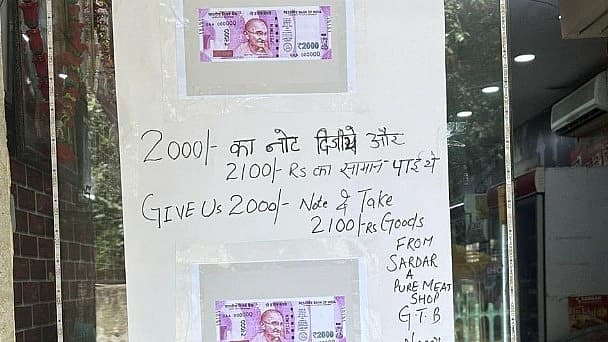 2000/- का नोट दिजीये और
2100/- Rs का सामान पाईये
GIVE US 2000/- Note & Take
2100/-Rs Goods
FROM
SARDAR
A
PURE MEAT
SHOP
G.T.B
₹2000
₹2000